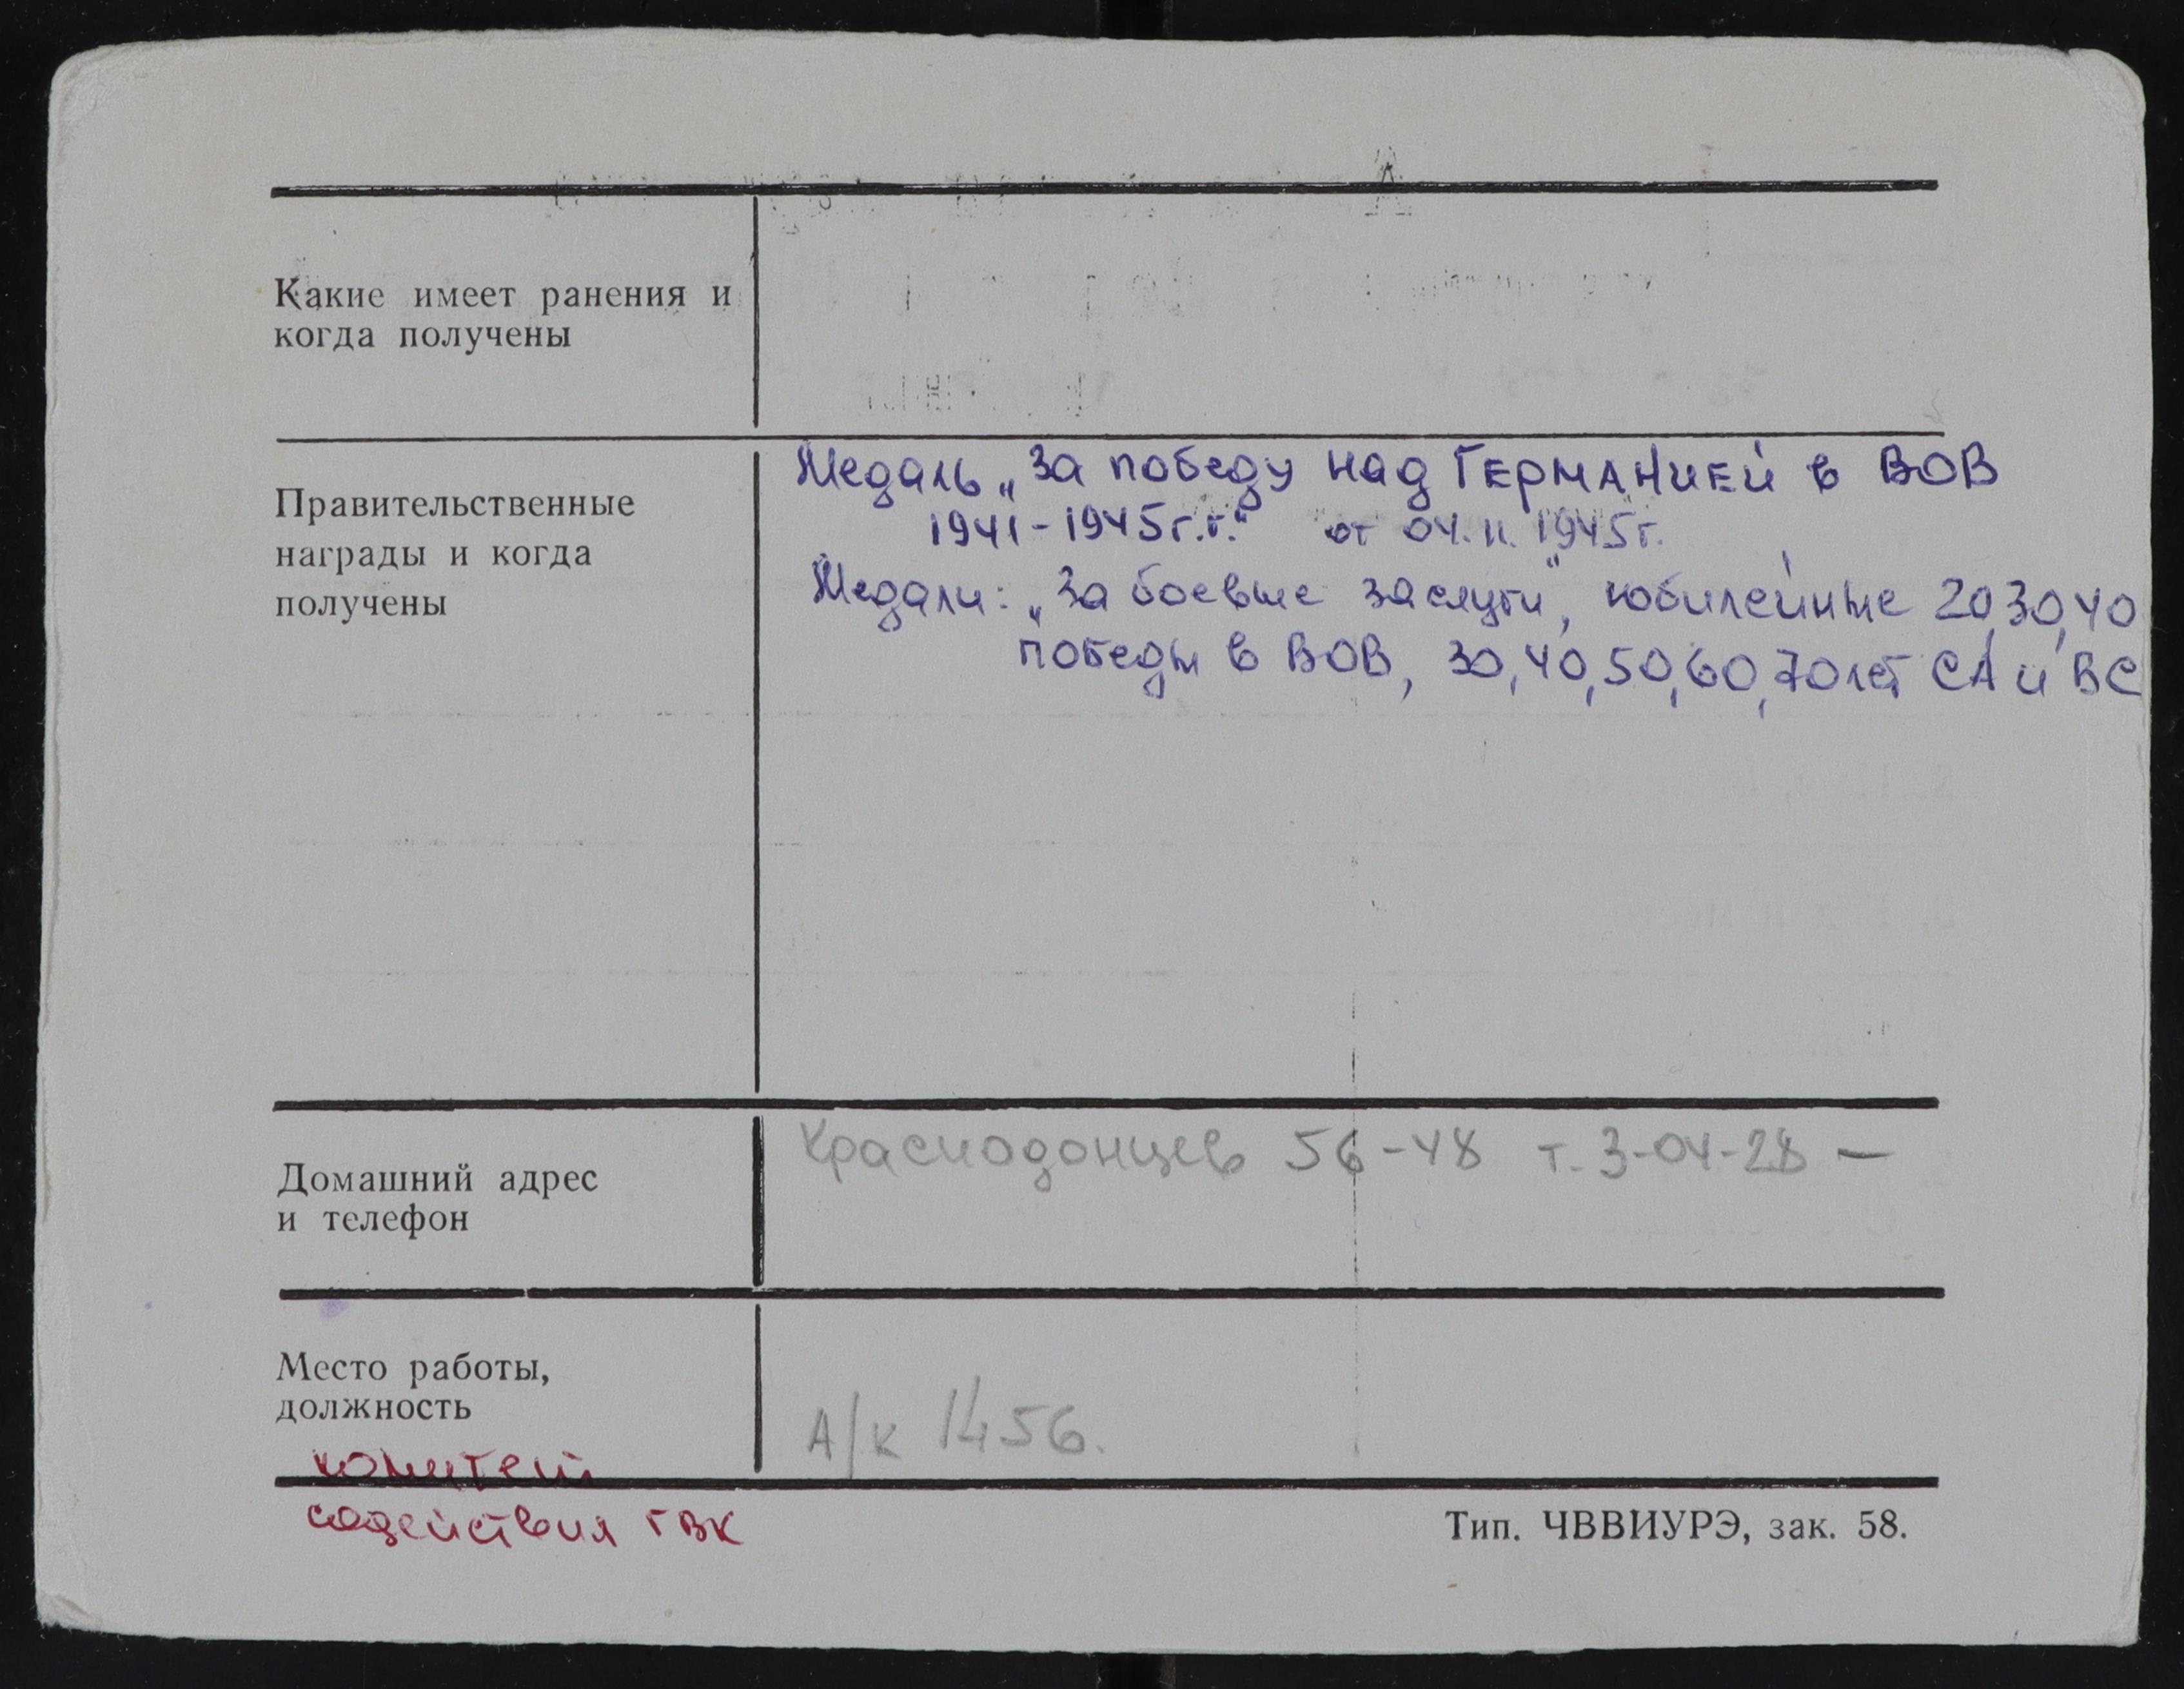 Какие имеет ранения и
когда получены
Правительственные
награды и когда
получены
Медаль „За победу над ГЕРМАНИЕЙ в ВОВ
1941-1945г.г." от 04.11.1945г.
Медали: „За боевые заслуги", юбилейные 20,30,40
победы в ВОВ, 30,40,50,60,70 лет СА и ВС
Домашний адрес
и телефон
Краснодонцев 56-48 т. 3-04-28 —
Место работы,
должность
А/к 1456.
комитет
содействия ГВК
Тип. ЧВВИУРЭ, зак. 58.